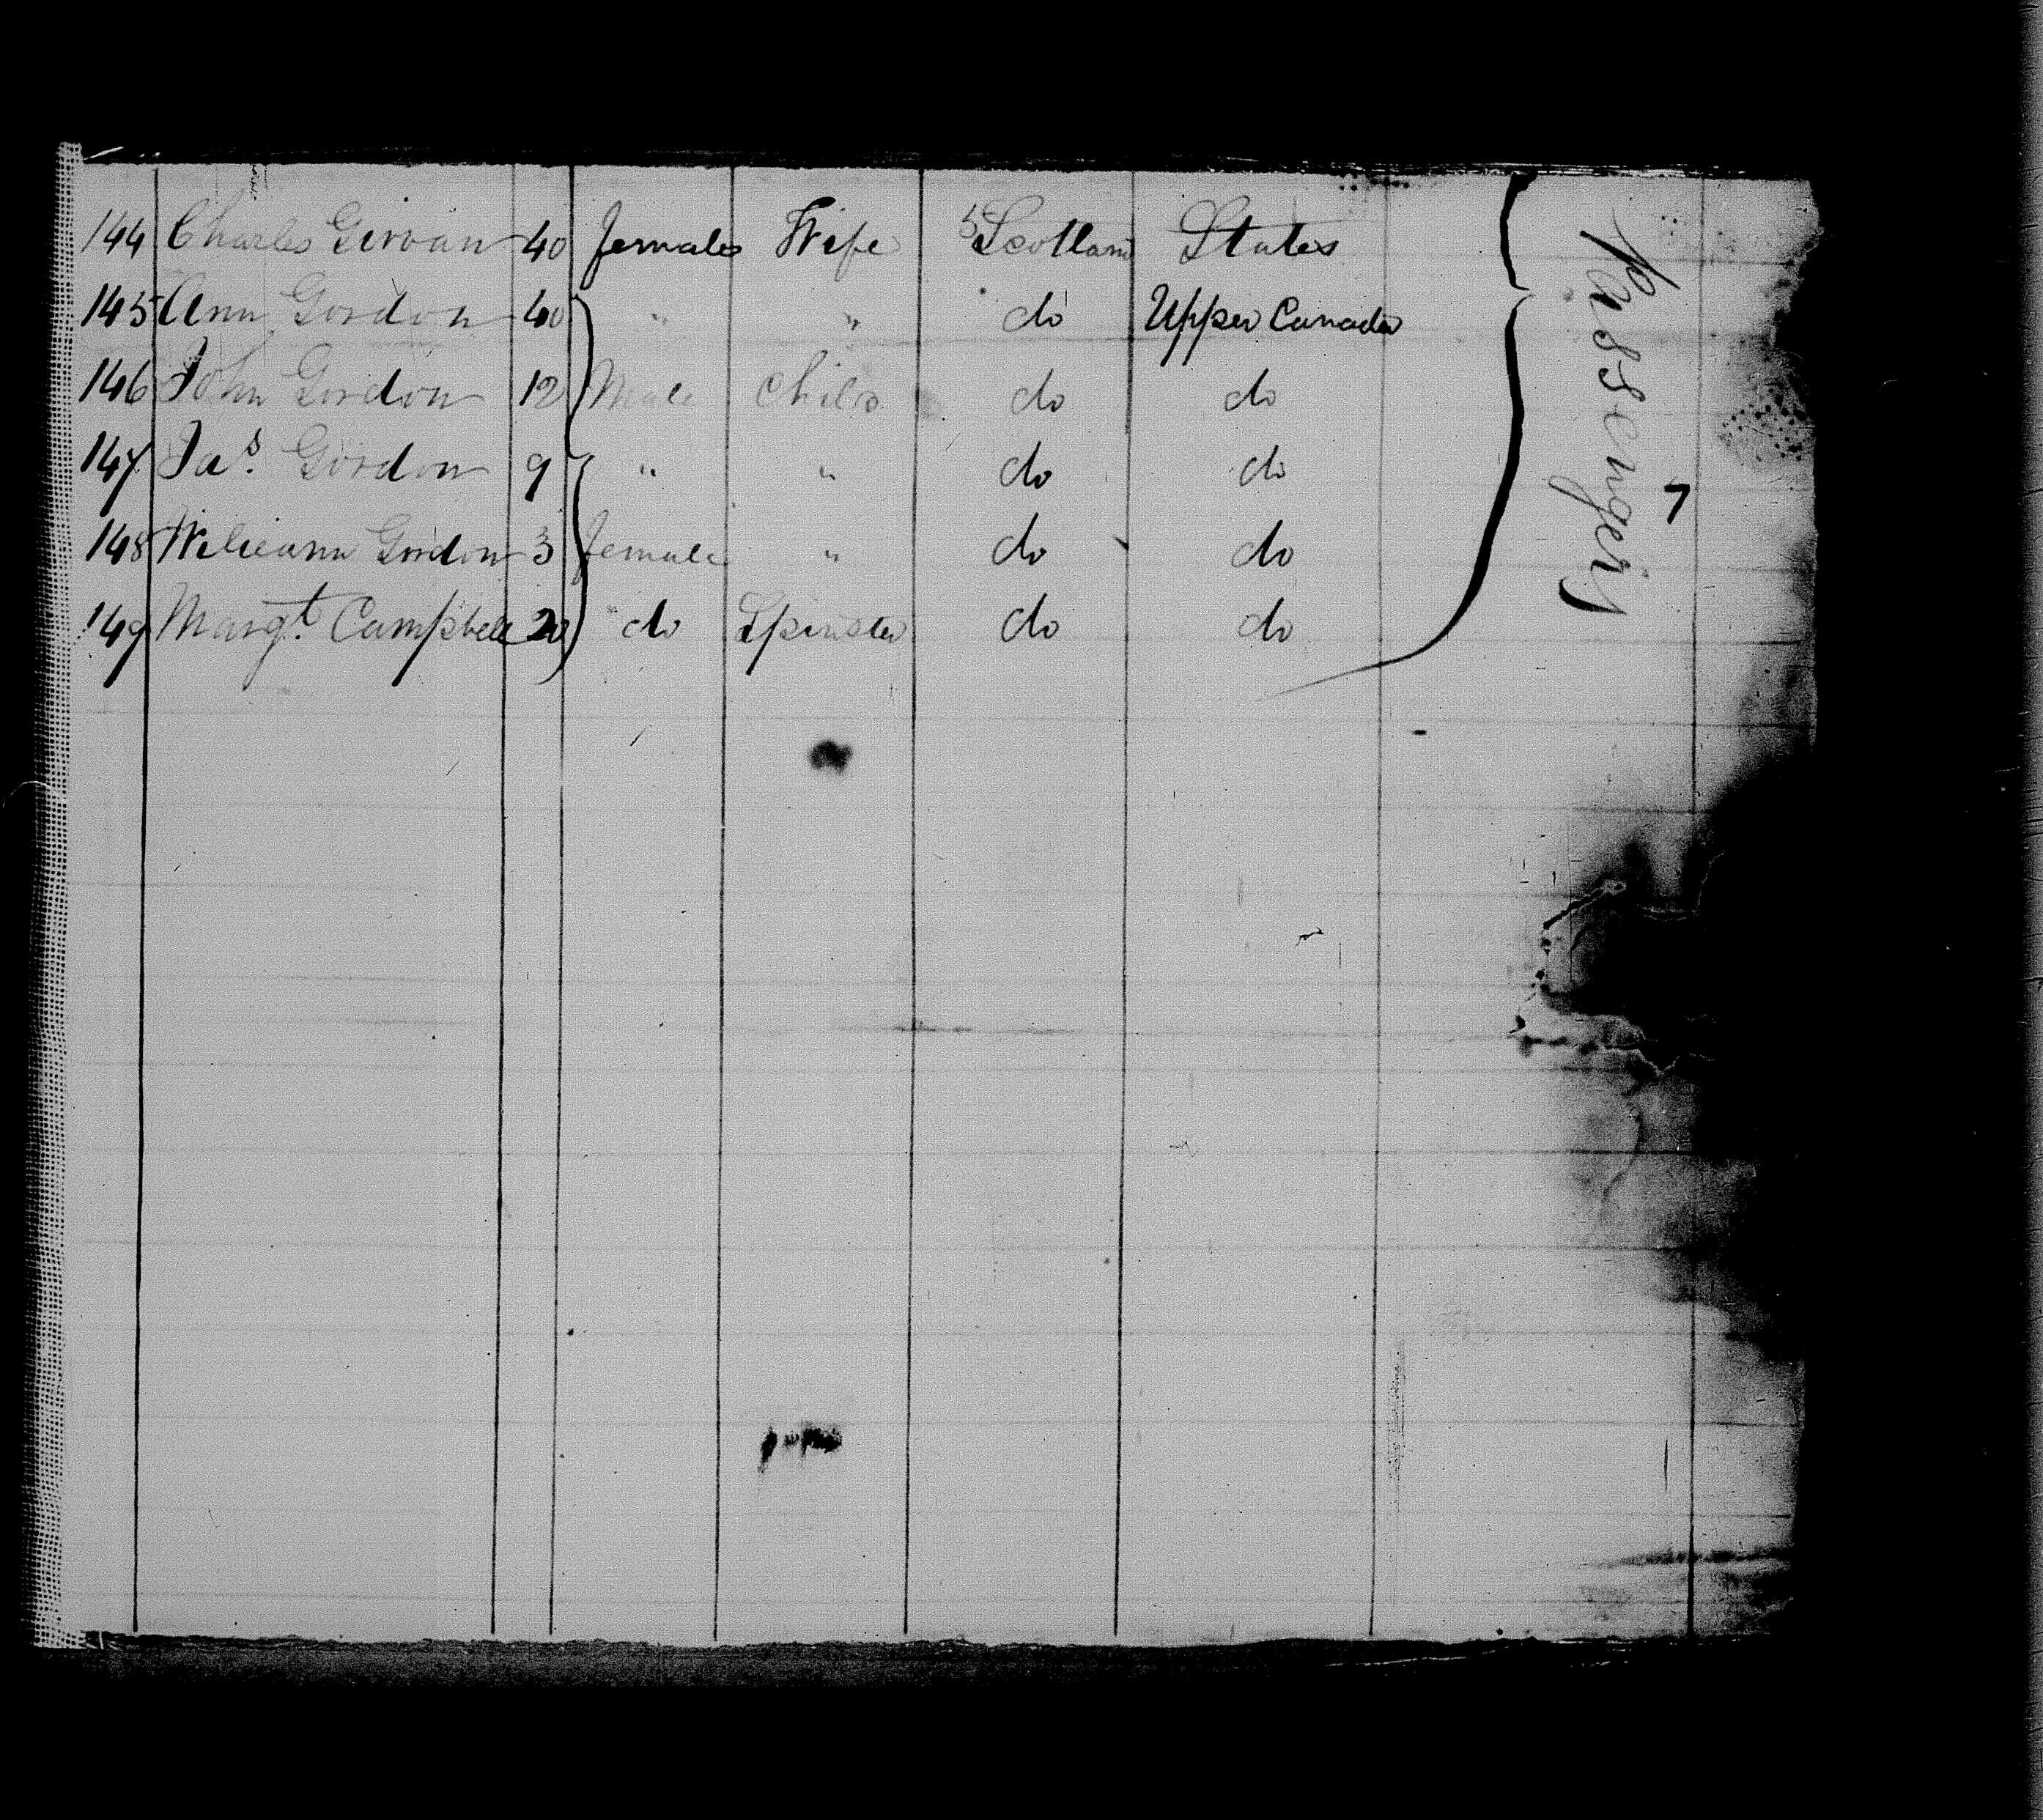 144 Charles Girvan 40 female Wife Scotland States
145 Ann Gordon 40 " " do Upper Canada
146 John Gordon 12 Male Child do do
147 Jas. Gordon 9 " " do do
148 Welieann Gordon 3 female " do do
149 Margt Campbell 20 do Spinster do do
Passengers
7